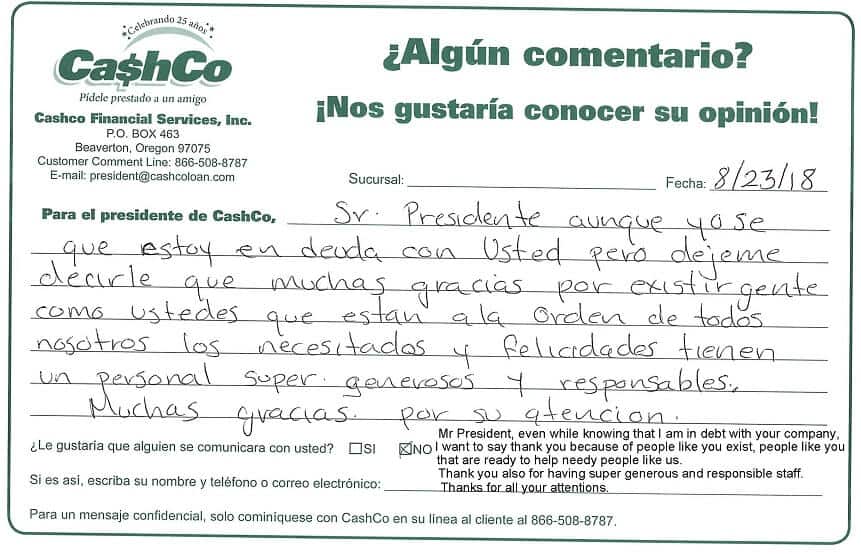 Celebrando 25 años
Ca$hCo
Pídele prestado a un amigo
Cashco Financial Services, Inc.
P.O. BOX 463
Beaverton, Oregon 97075
Customer Comment Line: 866-508-8787
E-mail: president@cashcoloan.com
¿Algún comentario?
¡Nos gustaría conocer su opinión!
Sucursal: Fecha: 8/23/18
Para el presidente de CashCo, Sr. Presidente aunque yo se
que estoy en deuda con Usted pero dejeme
decirle que muchas gracias por existir gente
como ustedes que estan a la Orden de todos
nosotros los necesitados y felicidades tienen
un personal super. generosos y responsables.
Muchas gracias. por su atencion.
¿Le gustaria que alguien se comunicara con usted? SI NO
Mr President, even while knowing that I am in debt with your company,
I want to say thank you because of people like you exist, people like you
that are ready to help needy people like us.
Thank you also for having super generous and responsible staff.
Thanks for all your attentions.
Si es así, escriba su nombre y teléfono o correo electrónico:
Para un mensaje confidencial, solo cominiquese con CashCo en su línea al cliente al 866-508-8787.